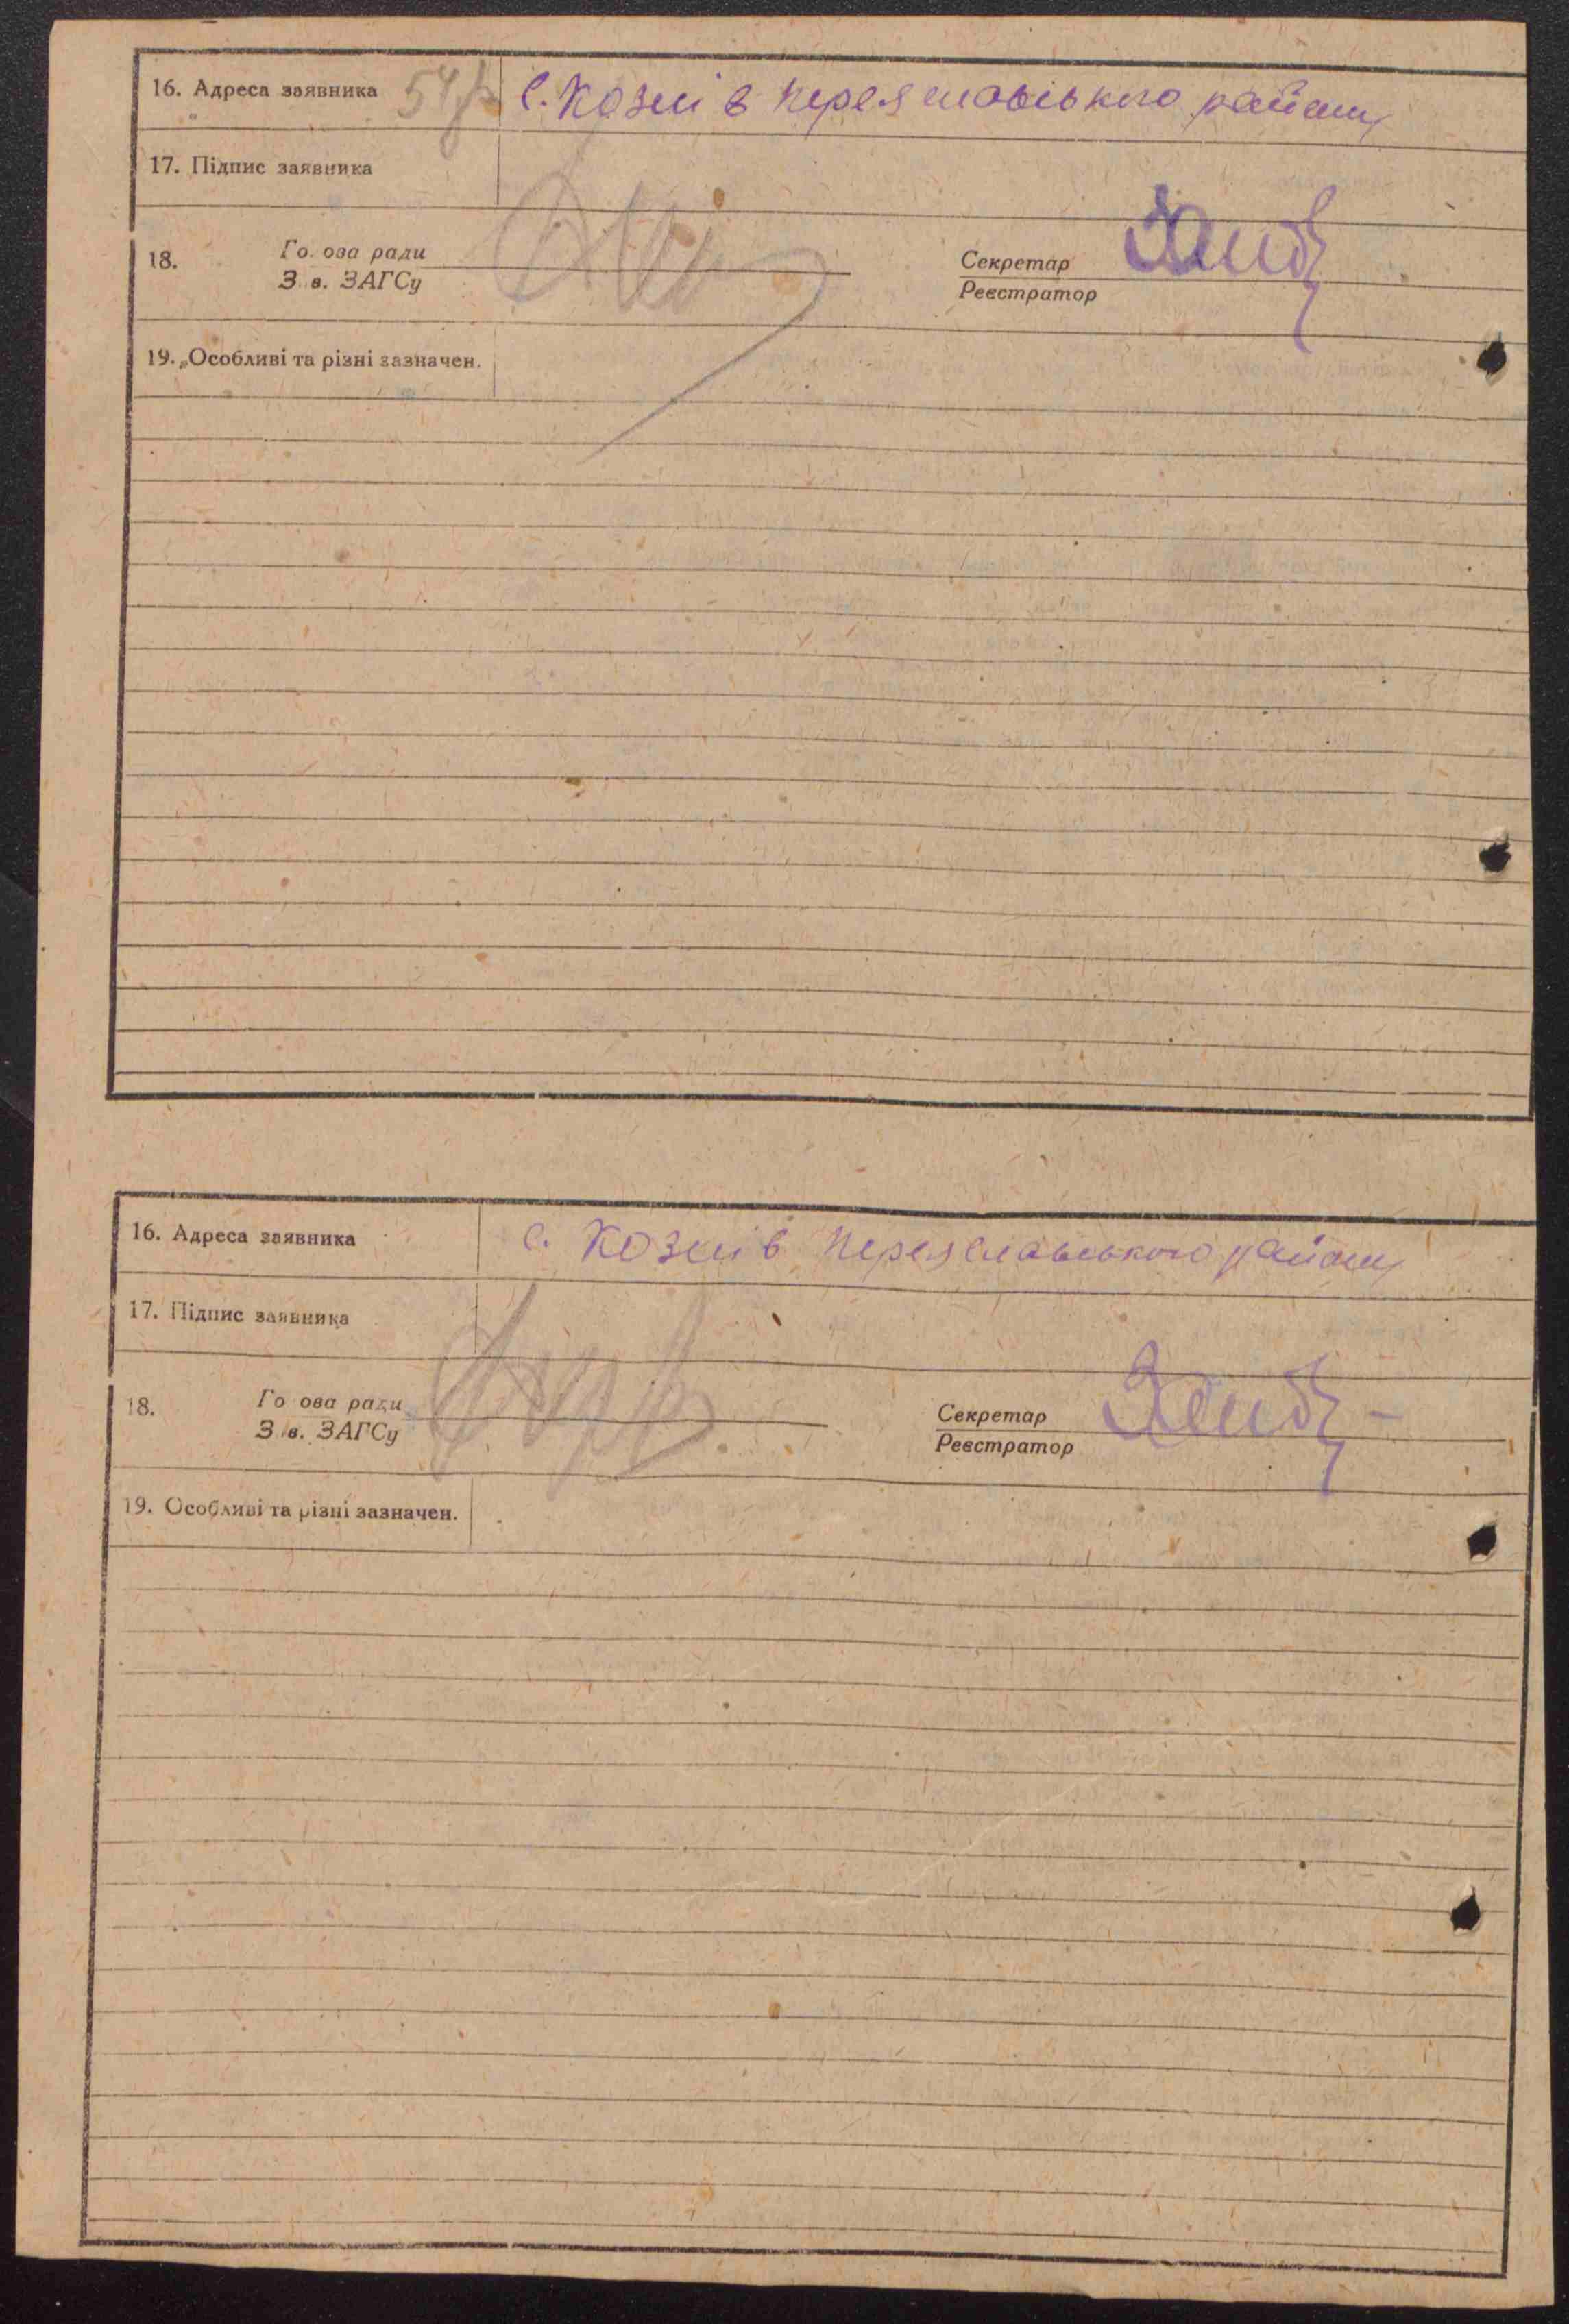 16. Адреса заявника
с. Козлів Переяславського району
17. Підпис заявника
18. Го ова ради
З в. ЗАГСу
Секретар
Реєстратор
19. Особливі та різні зазначен.
16. Адреса заявника
с. Козлів Переяславського району
17. Підпис заявника
18. Го ова ради
З в. ЗАГСу
Секретар
Реєстратор
19. Особливі та різні зазначен.